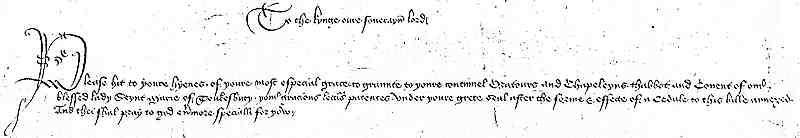 To the kynge oure soverayn lord
Please hit to youre hyenes of youre most especial grace to graunte to youre continuel Oratours and Chapeleyns thabbot and Covent of our
blessed lady Seynt Marie of Teukesbury your gracious lettres patentes under youre grete seal after the fourme & effecte of a Cedule to this bille annexed
And thei shul pray to god evermore specialli for yow